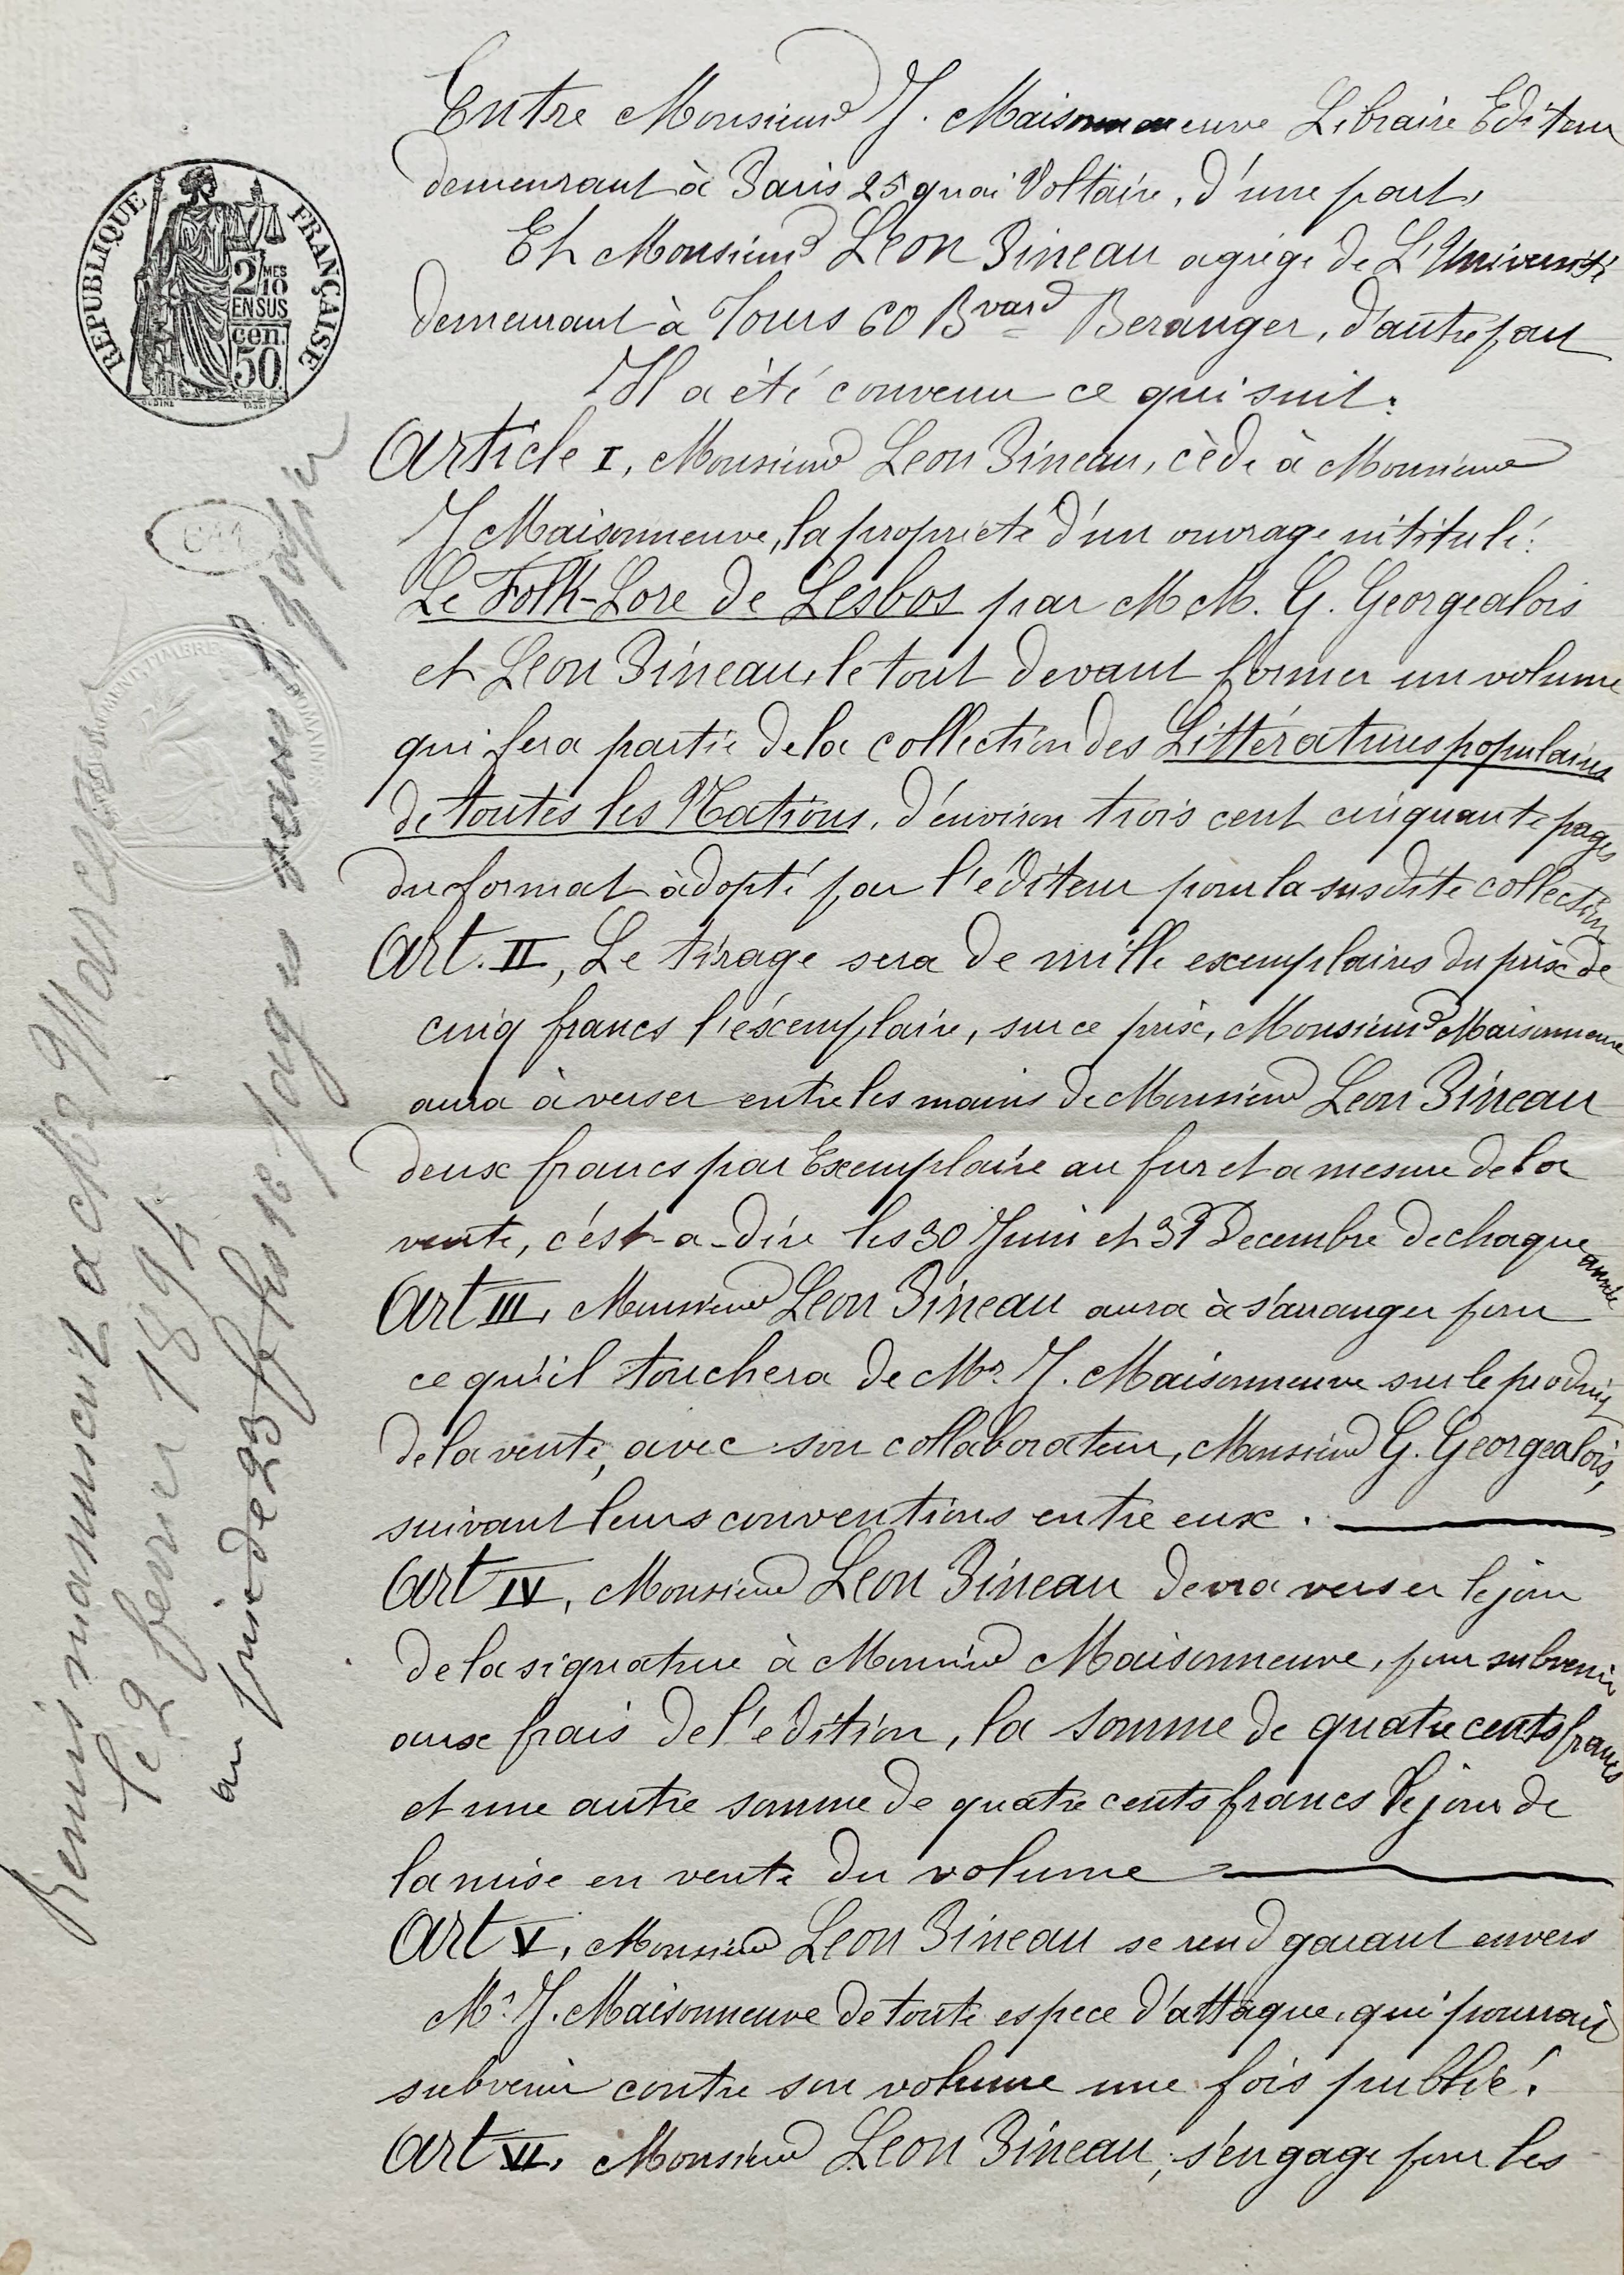 Entre Monsieur J. Maisonneuve Libraire Editeur
demeurant à Paris 25 quai Voltaire, d'une part,
Et Monsieur Leon Pineau agrégé de L'Université
demeurant à Tours 60 Bvard Beranger, d'autre part
Il a été convenu ce qui suit:
Article I, Monsieur Leon Pineau, cède à Monsieur
J Maisonneuve, la propriété d'un ouvrage intitulé:
Le Folk-Lore de Lesbos par M M. G. Georgeakis
et Leon Pineau, le tout devant former un volume
qui fera partie de la collection des Littératures populaires
de toutes les Nations, d'environ trois cent cinquante pages
du format adopté par l'éditeur pour la susdite collection
Art. II, Le tirage sera de mille exemplaires du prix de
cinq francs l'éxemplaire, sur ce prix, Monsieur Maisonneuve
aura à verser entre les mains de Monsieur Leon Pineau
deux francs par Exemplaire au fur et a mesure de la
vente, c'ést-a-dire les 30 Juin et 31 Decembre de chaque année
Art III, Monsieur Leon Pineau aura à s'arranger pour
ce qu'il touchera de Mr J. Maisonneuve sur le produit
de la vente, avec son collaborateur, Monsieur G. Georgeakis,
suivant leurs conventions entre eux.
Art IV, Monsieur Leon Pineau devra verser le jour
de la signature à Monsieur Maisonneuve, pour subvenir
aux frais de l'édition, la somme de quatre cents francs
et une autre somme de quatre cents francs le jour de
la mise en vente du volume
Art V, Monsieur Leon Pineau se rend garant envers
Mr J. Maisonneuve de toute espece d'attaque, qui pourrait
subvenir contre son volume une fois publié.
Art VI, Monsieur Leon Pineau, s'engage pour les
REPUBLIQUE FRANÇAISE
2/10 MES
EN SUS
cen.
50
Remis manuscrit a Mr
le 2 fevrier 1894
au prix de 23 f les 16 pages sans papier